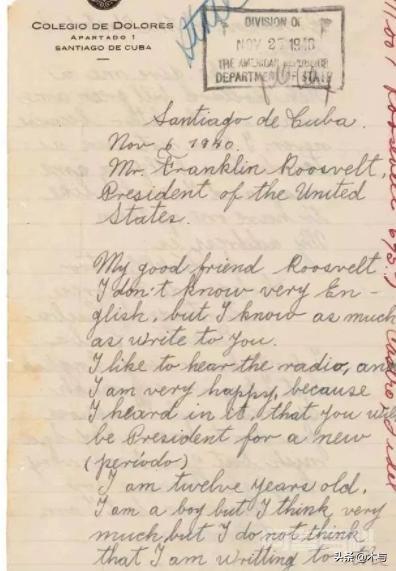 COLEGIO DE DOLORES
APARTADO 1
SANTIAGO DE CUBA
DIVISION OF
NOV 27 1940
THE AMERICAN REPUBLICS
DEPARTMENT OF STATE
Santiago de Cuba.
Nov 6 1940.
Mr. Franklin Roosvelt,
President of the United
States.
My good friend Roosvelt
I don't know very En-
glish, but I know as much
as write to you.
I like to hear the radio, and
I am very happy, because
I heard in it, that you will
be President for a new
(período)
I am twelve years old.
I am a boy but I think very
much, but I do not think
that I am writting to the
头条@木与